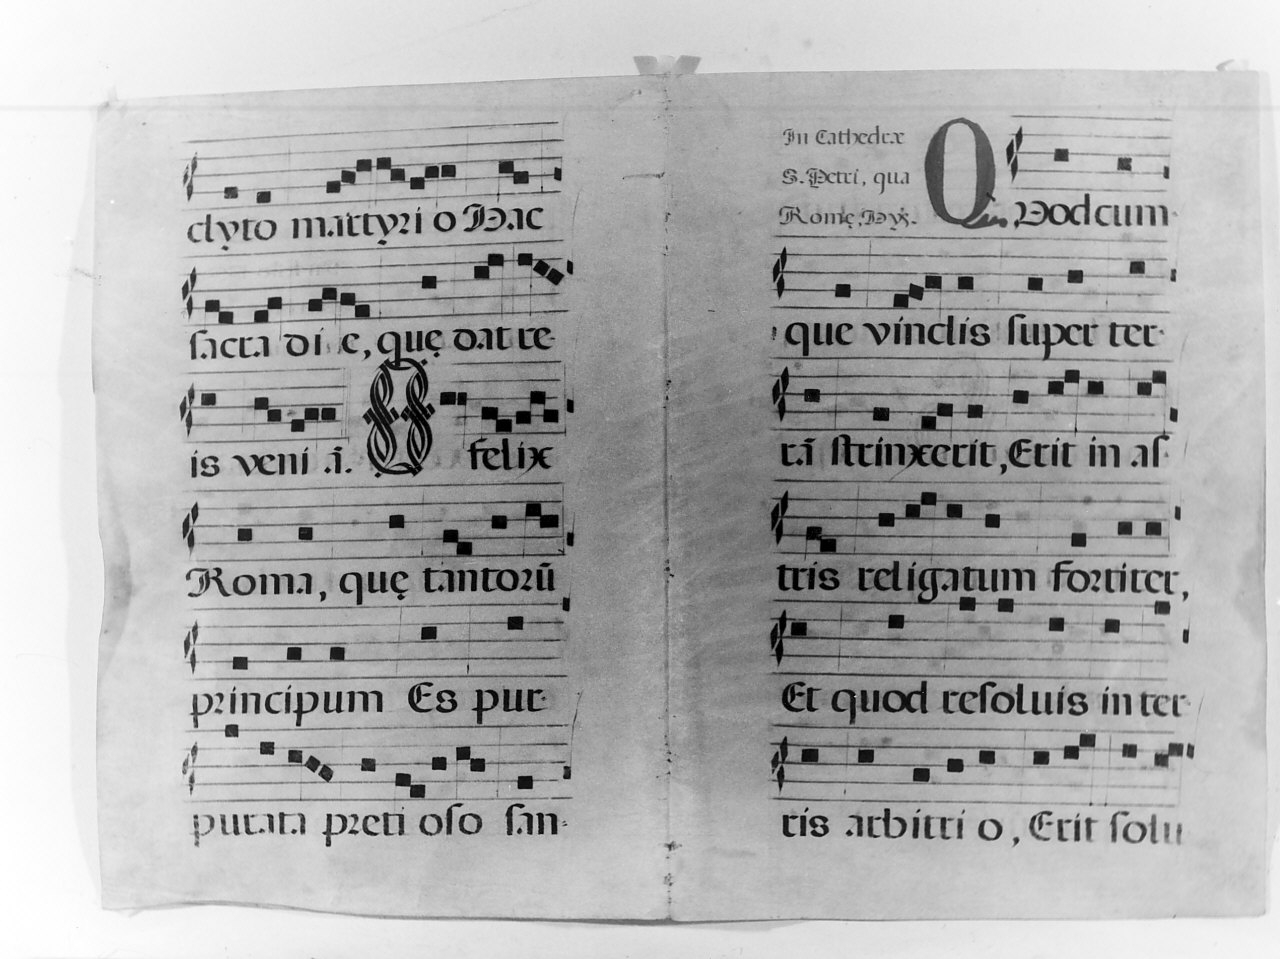 clyto martyri o Hac
sacra di e, quę dat re-
is veni ā. O felix
Roma, quę tantorū
principum Es pur-
purata preti oso san-
In Cathedræ
S. Petri, qua
Romę, Hyṁ.
QVodcum-
que vinclis super ter-
rā strinxerit, Erit in as-
tris religatum fortiter,
Et quod resoluis in ter-
ris arbitri o, Erit solu